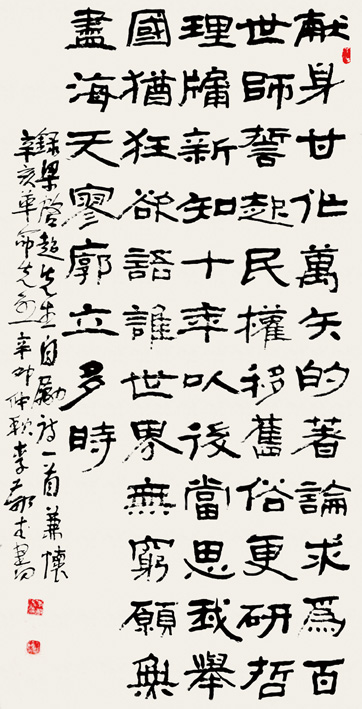 献身甘作萬矢的著論求爲百
世師誓起民權移舊俗更研哲
理牖新知十年以後當思我舉
國猶狂欲語誰世界無窮願無
盡海天寥廓立多時
錄梁啓超先生自勵詩一首兼懷
辛亥革命先烈辛卯仲秋李書